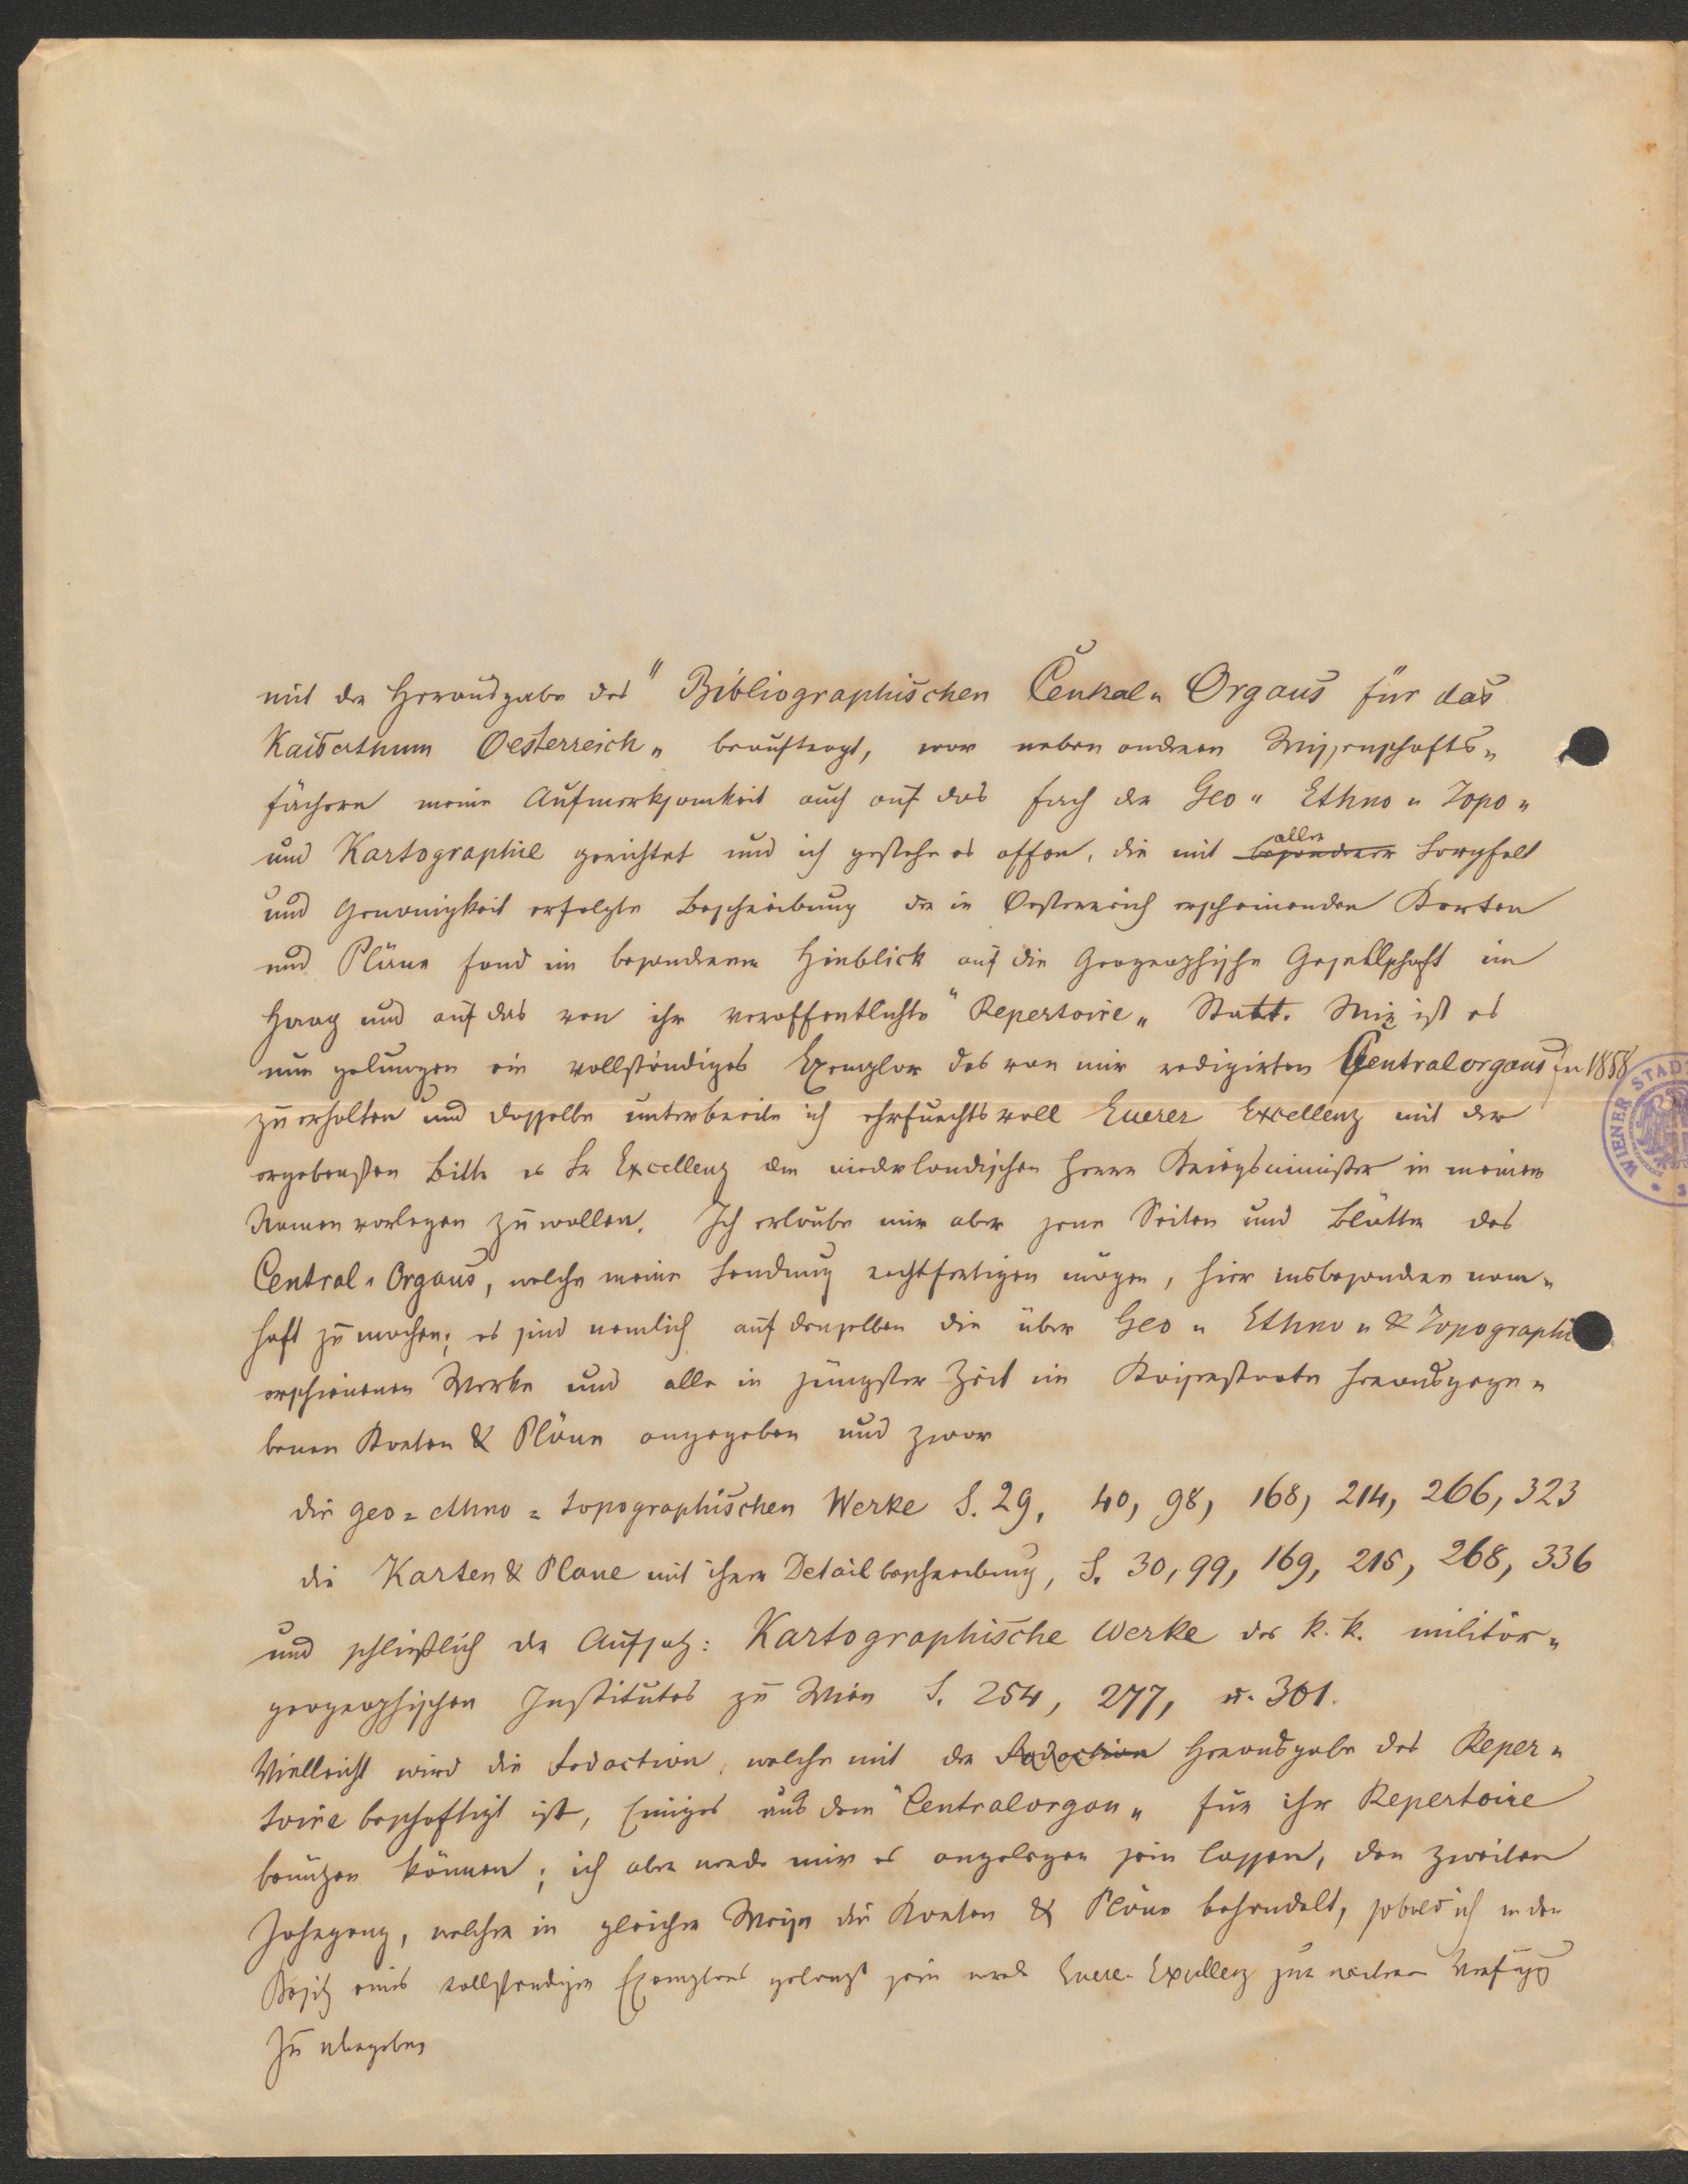 mit der Herausgabe des "Bibliographischen Central= Organs für das
Kaiserthum Oesterreich" beauftragt, war neben anderen Wissenschafts=
fächern meine Aufmerksamkeit auch auf das Fach der Geo= Ethno= Topo=
und Kartographie gerichtet und ich gestehe es offen, die mit besonderer aller Sorgfalt
und Genauigkeit erfolgte Beschreibung der in Oesterreich erscheinenden Karten
und Pläne fand im besonderen Hinblick auf die Geographische Gesellschaft im
Haag und auf das von ihr veröffentlichte "Repertoire" Statt. Mir ist es
nun gelungen ein vollständiges Exemplar des von mir redigirten Centralorgans für 1858
zu erhalten und dasselbe unterbreite ich ehrfurchtsvoll Euerer Excellenz mit der
ergebensten Bitte es Sr Excellenz dem niederländischen Herrn Kriegsminister in meinem
Namen vorlegen zu wollen. Ich erlaube mir aber jene Seiten und Blätter des
Central=Organs, welche meine Sendung rechtfertigen mögen, hier insbesondere nam=
haft zu machen; es sind nemlich auf denselben die über Geo= Ethno= & Topographie
erschienenen Werke und alle in jüngster Zeit im Kaiserstaate herausgege=
benen Karten & Pläne angegeben und zwar
die geo= ethno= topographischen Werke S. 29, 40, 98, 168, 214, 266, 323
die Karten & Plane mit ihrer Detailbeschreibung, S. 30, 99, 169, 215, 268, 336
und schließlich der Aufsatz: Kartographische Werke des k.k. militär=
geographischen Institutes zu Wien S. 254, 277, u. 301.
Vielleicht wird die Redaction, welche mit der Redaction Herausgabe des Reper=
toire beschäftigt ist, Einiges aus dem "Centralorgan" für ihr Repertoire
benützen können; ich aber werde mir es angelegen sein lassen, den zweiten
Jahrgang, welcher in gleicher Weise die Karten & Pläne behandelt, sobald ich in den
Besitz eines vollständigen Exemplars gelangt sein werde Euere Excellenz zur weiteren Verfügg
zu übergeben
WIENER STAD